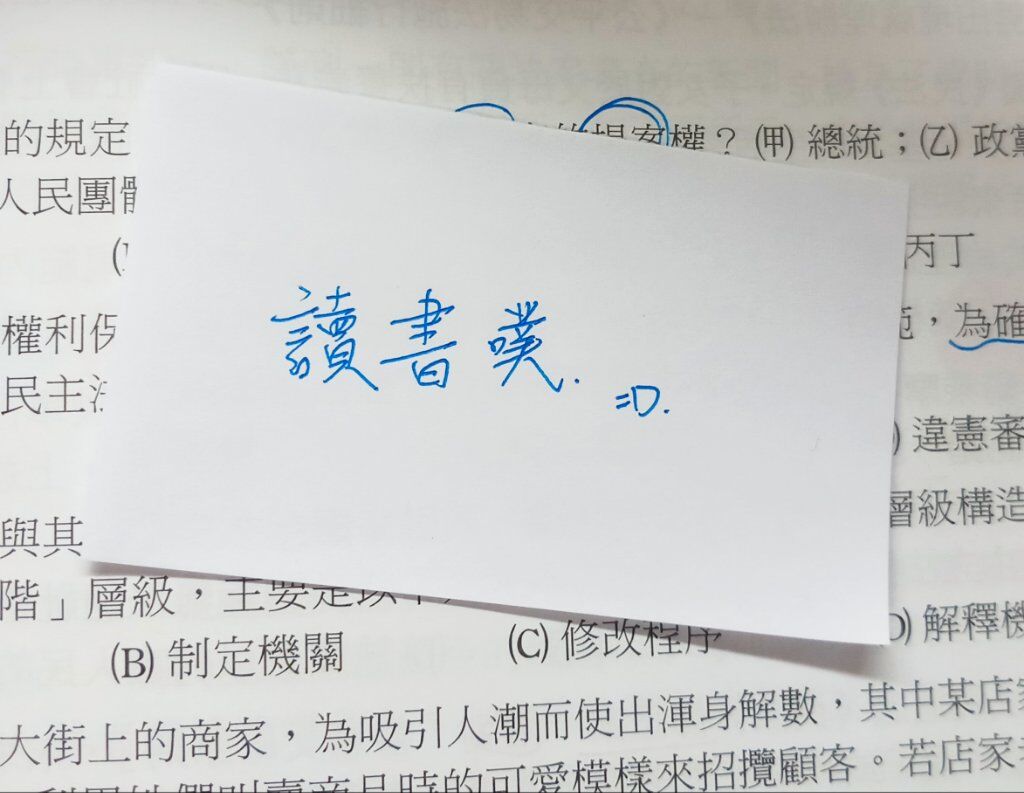 的規定 提案權？ ㈙ 總統；㈚ 政黨
人民團體
丙丁
讀書噗. =D.
權利保 ，為確
民主法
違憲審
與其 層級構造
階」層級，主要是以下
(B) 制定機關 (C) 修改程序 (D) 解釋機
大街上的商家，為吸引人潮而使出渾身解數，其中某店家
叫賣商品時的可愛模樣來招攬顧客。若店家